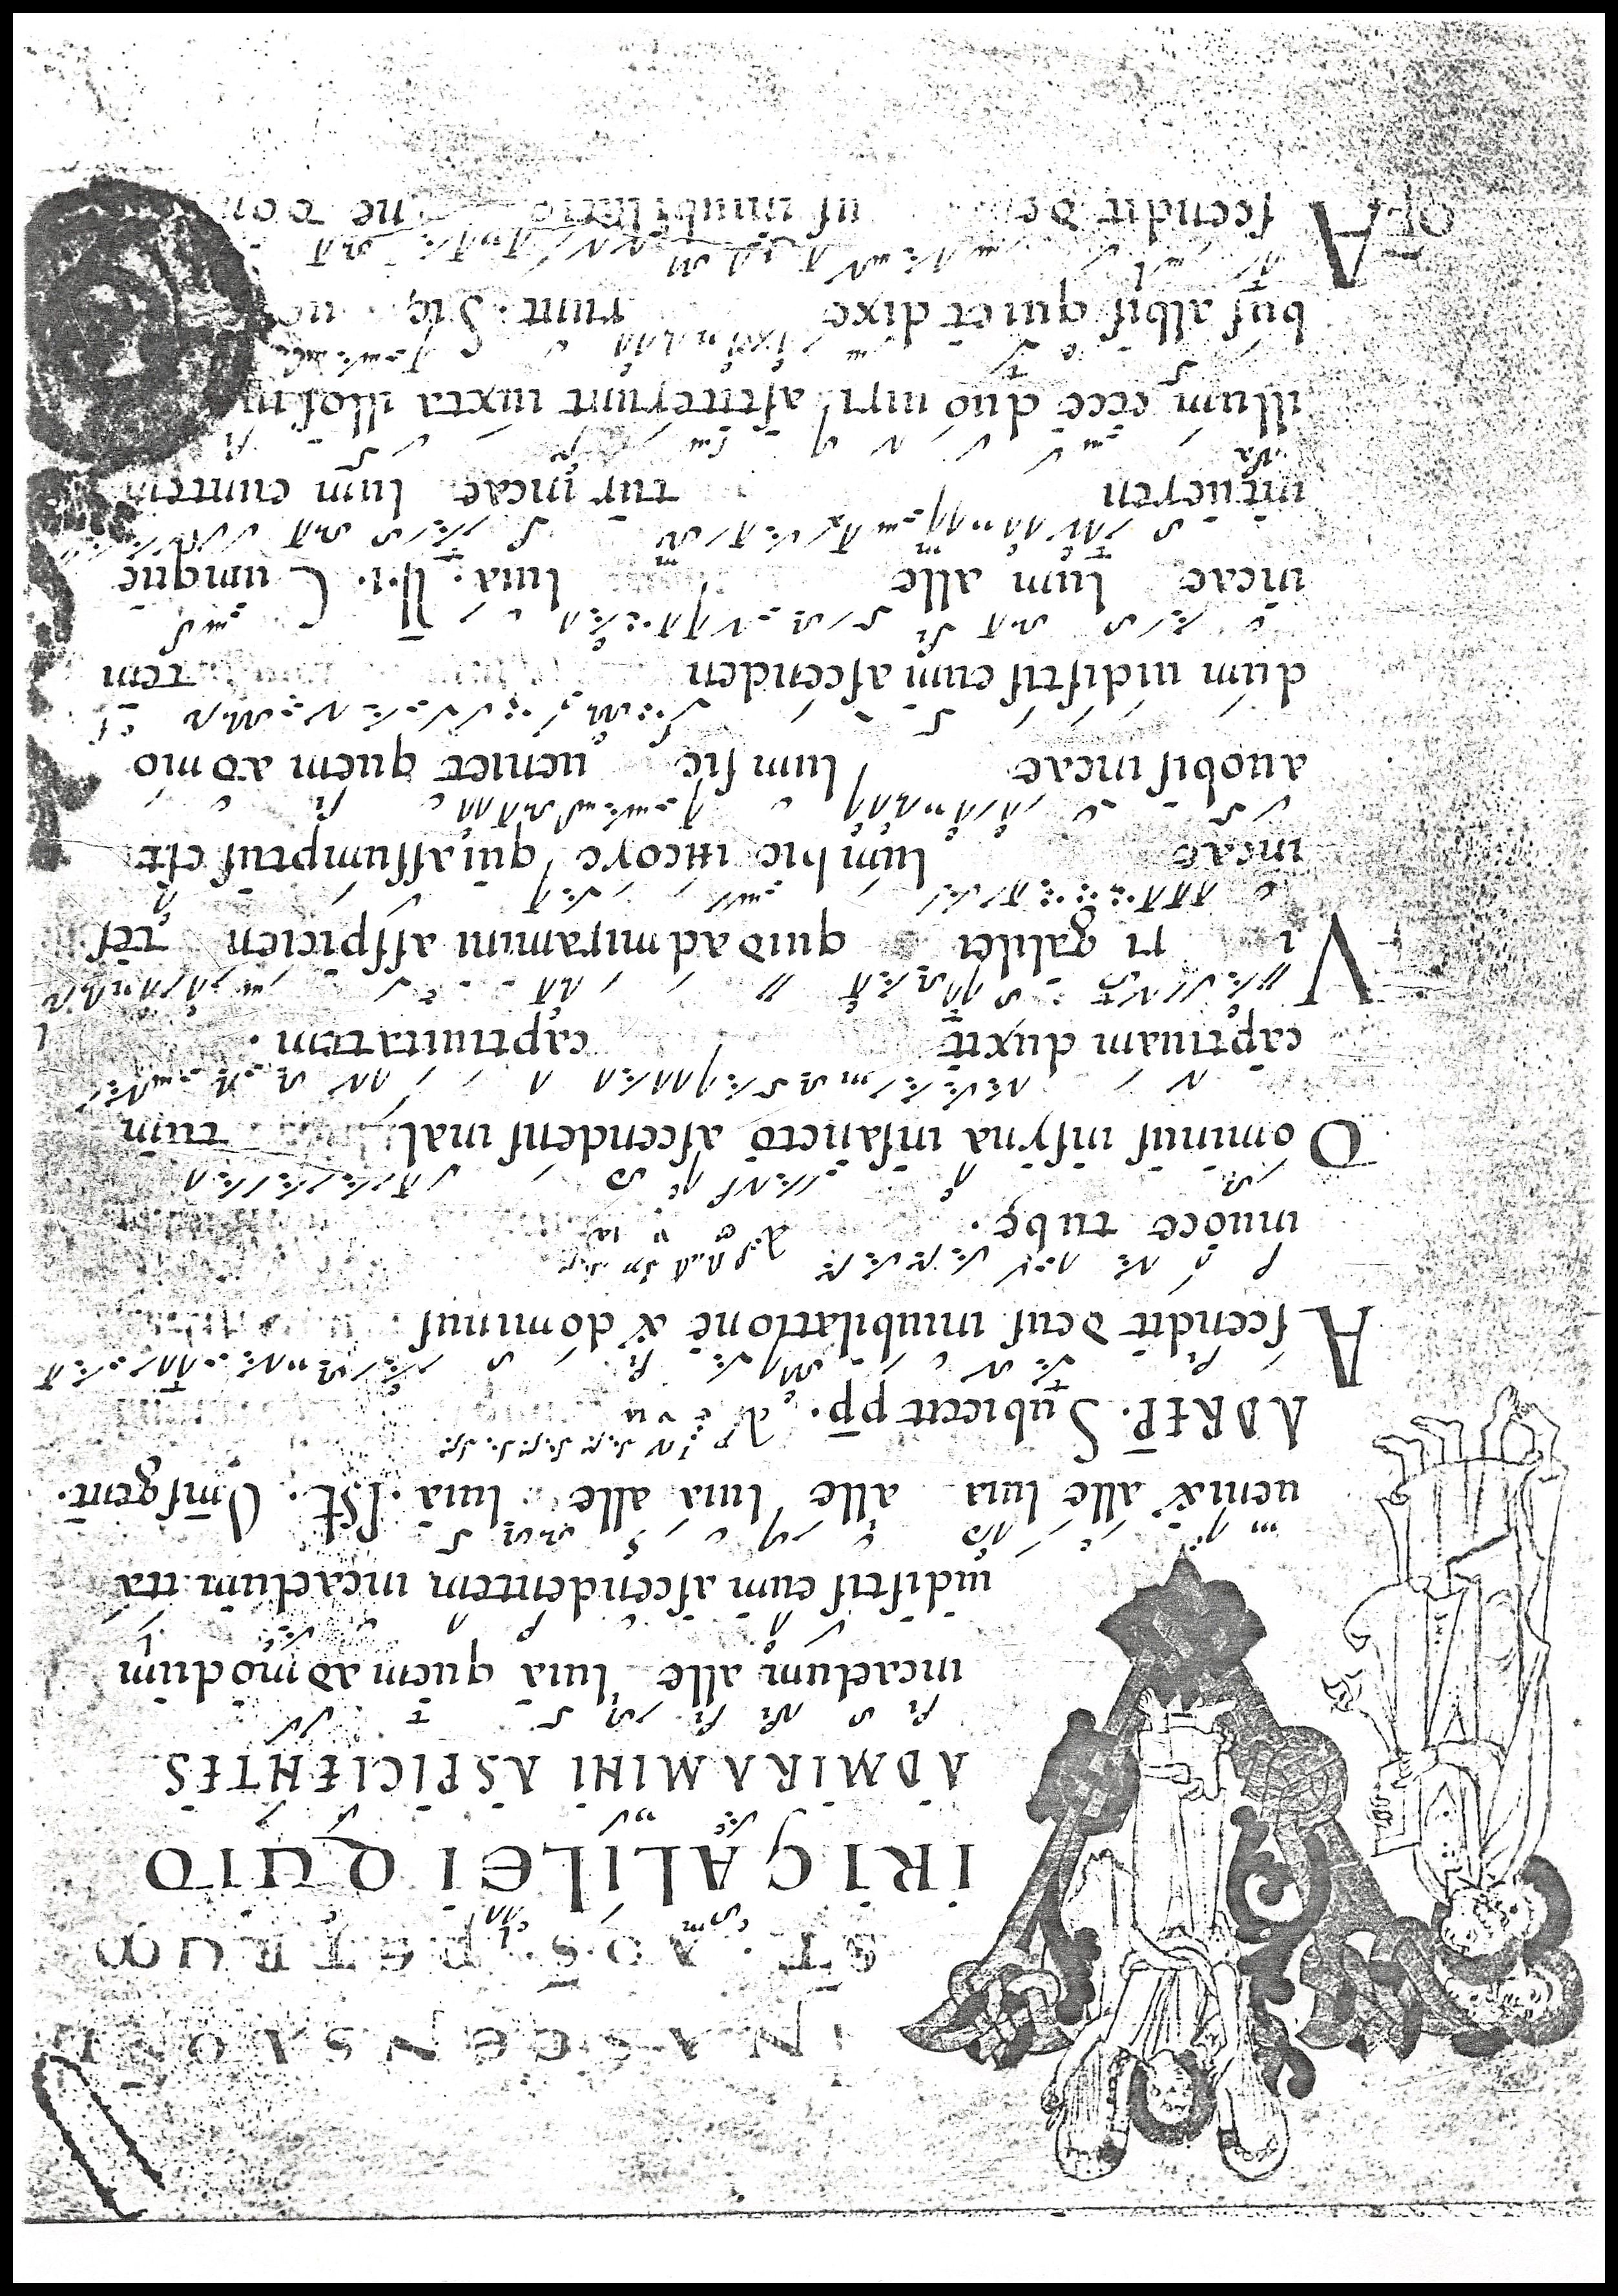 IN ASCENSA DOM
ET · AD · S · PETRUM
IRI GALILEI QUID
ADMIRAMINI ASPICIENTES
incaelum alle luia quem admodum
uidistis eum ascendentem incaelum ita
ueni& alle luia alle luia alle luia · ps̄t. Om̄s gent̄.
AD REP̄. Subiecit pp̄. A e u
Ascendit deus iniubilatione & dominus
inuoce tubę. A e u ia
Dominus insyna insancto ascendens inal tum
captiuam duxit captiuitatem.
Vi ri galilei quid admiramini aspicien tes
incae lum hic incore qui assumptus est
auobis incae lum sic ueniet quem admo
dum uidistis eum ascenden tem
incae lum alle luia. V̄.i. Cumque
intueren tur incae lum euntem
illum ecce duo uiri astiterunt iuxta illos in
bus albis qui et dixe runt. Sic ue
OF Ascendit de us iniubilatio ne & do